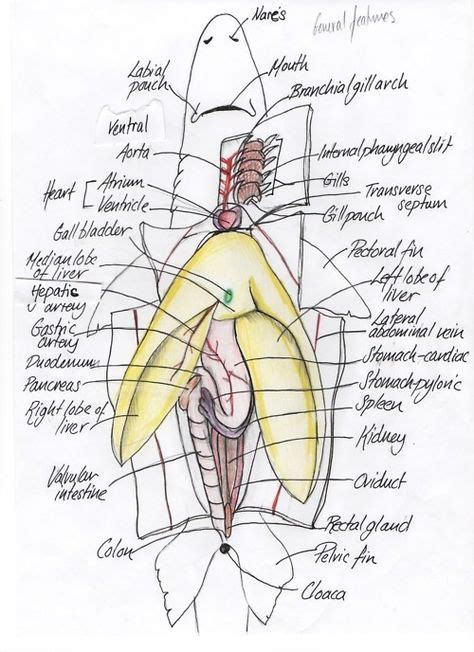 Nares
General features
Labial
pouch
Mouth
Branchial gill arch
Ventral
Aorta
Internal pharyngeal slit
Heart
Atrium
Ventricle
Gills
Transverse
septum
Gill pouch
Gall bladder
Pectoral fin
Median lobe
of liver
Left lobe of
liver
Hepatic
artery
Lateral
abdominal vein
Gastric
artery
Stomach-cardiac
Duodenum
Stomach-pyloric
Pancreas
Spleen
Right lobe of
liver
Kidney
Valvular
intestine
Oviduct
Rectal gland
Colon
Pelvic fin
Cloaca